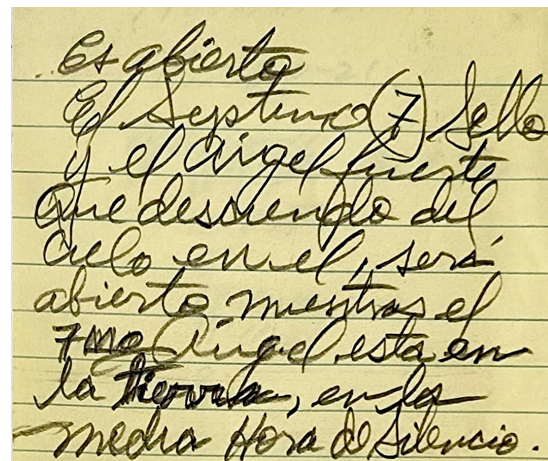 ..es abierto
El Septimo (7) Sello
y el Angel fuerte
que desciende del
Cielo en el, será
abierto mientras el
7mo Angel esta en
la tierra, en la
media Hora de Silencio.